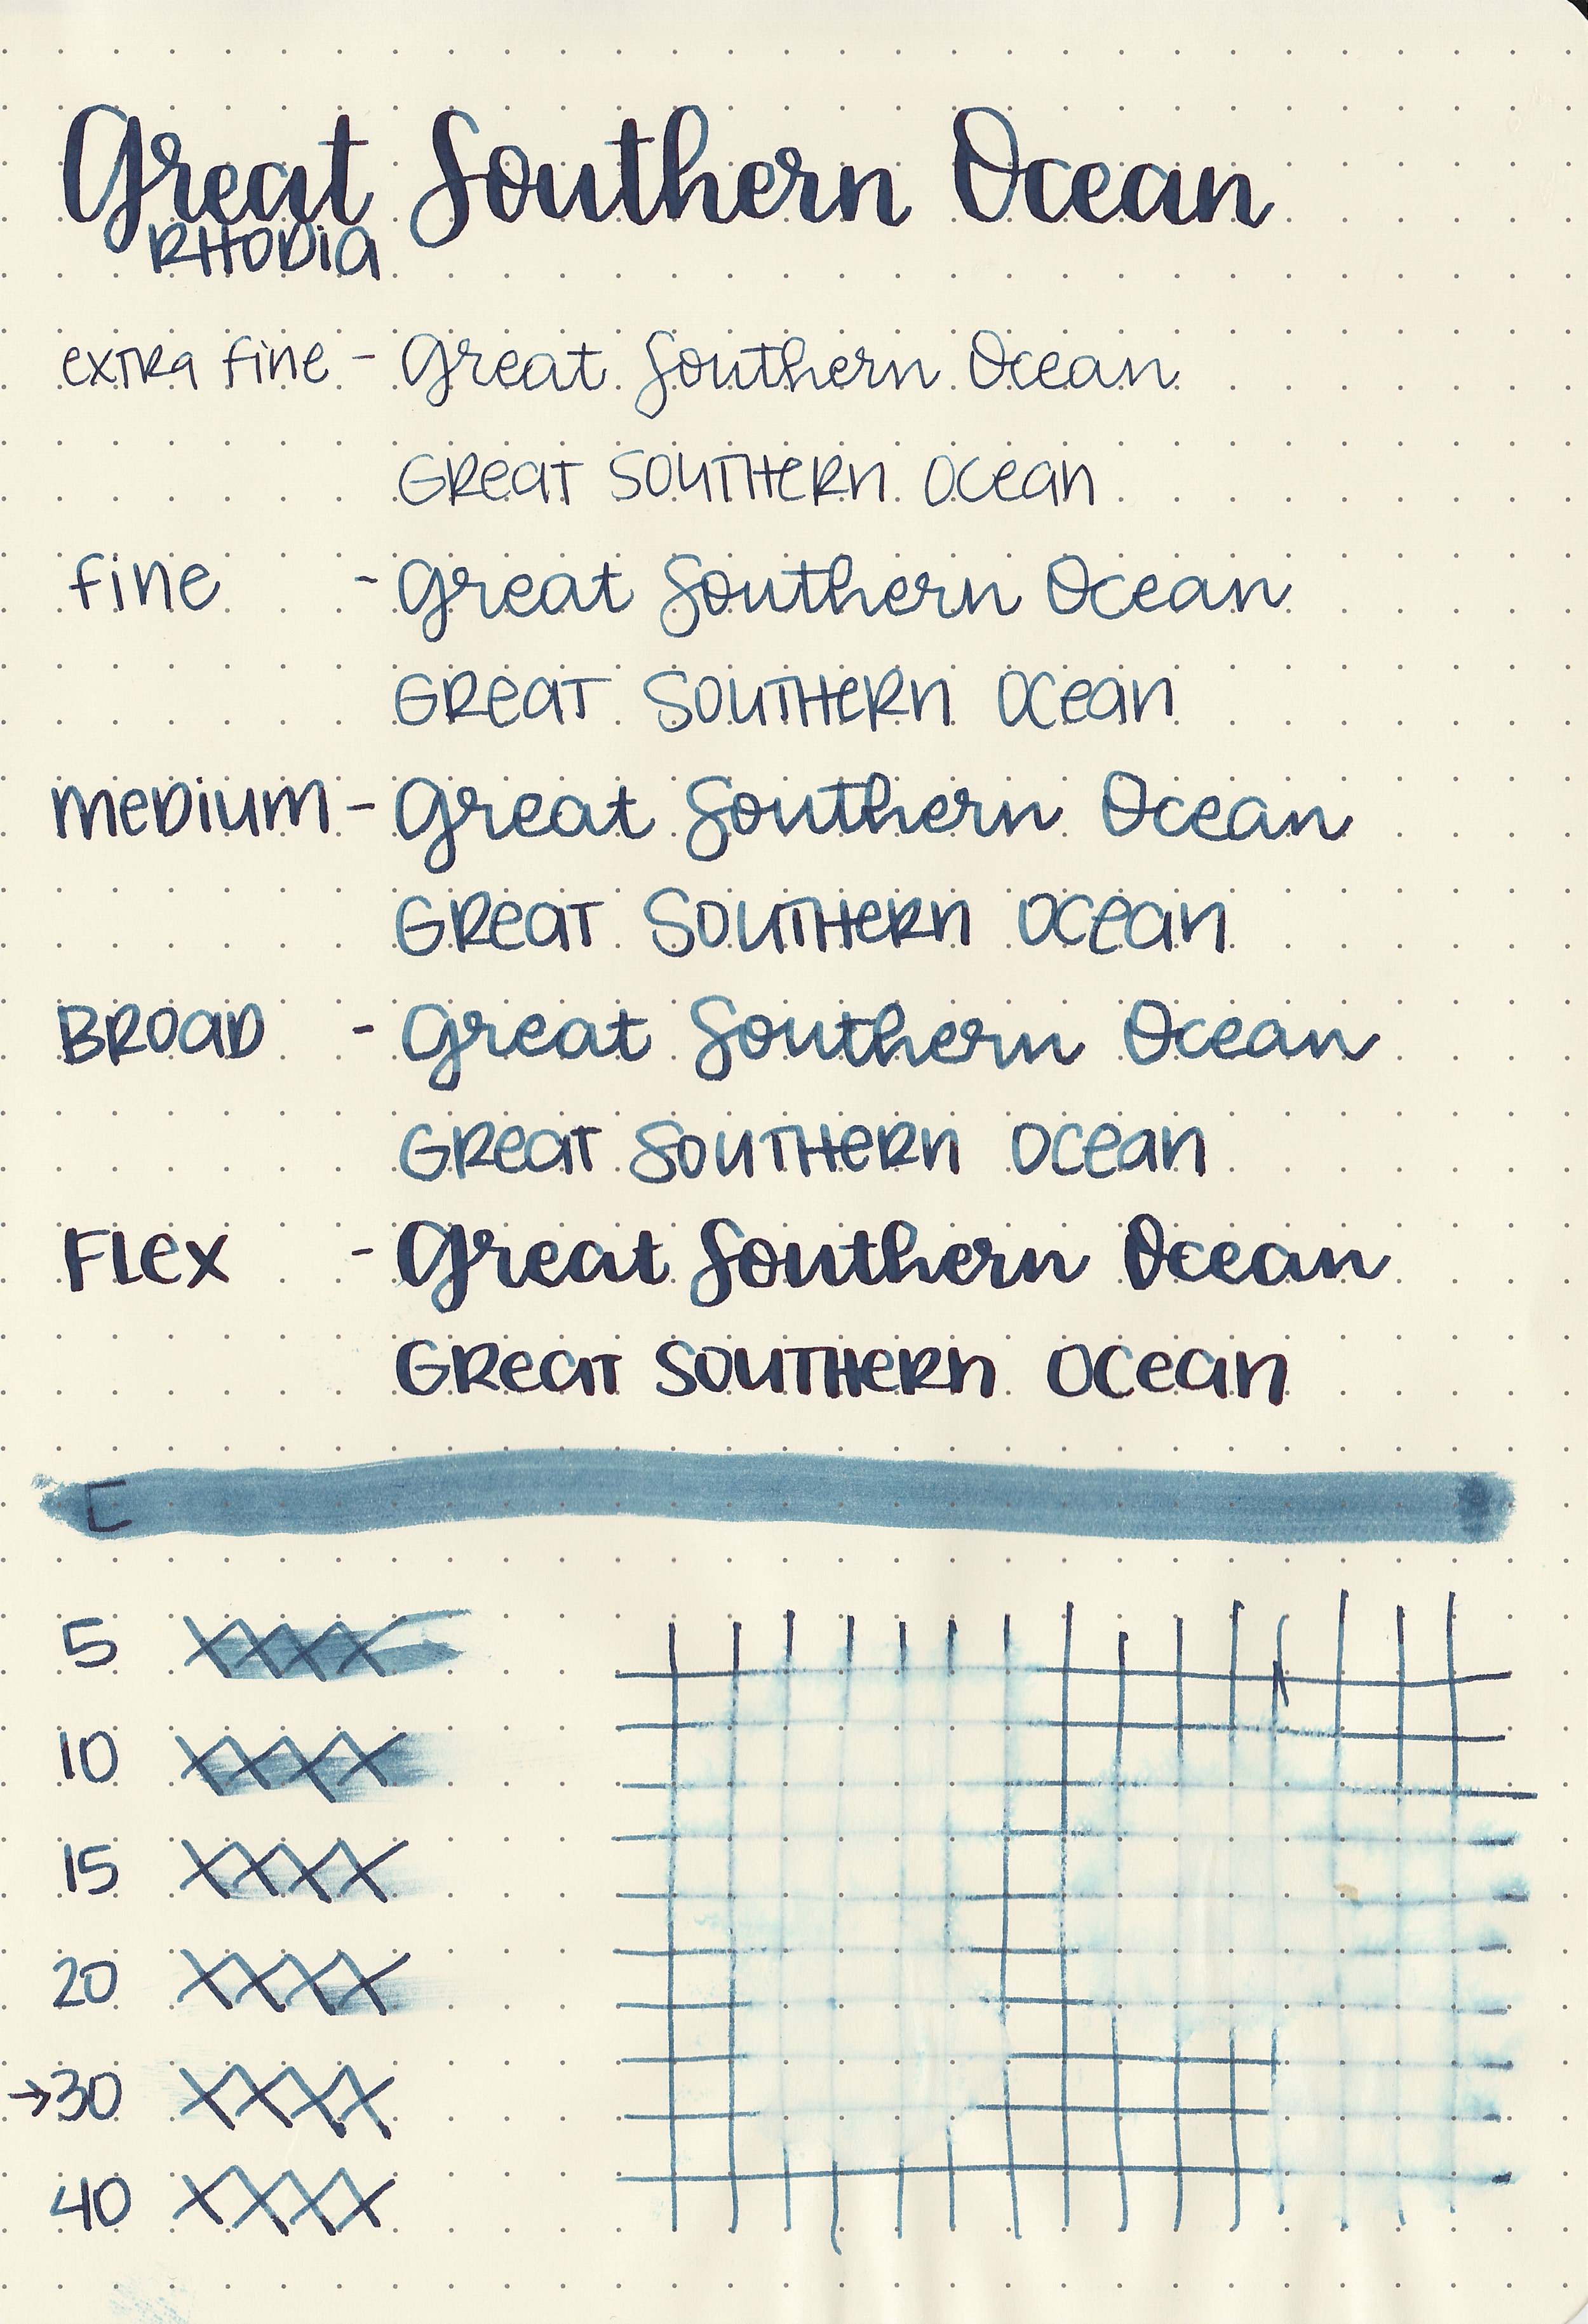 Great Southern Ocean
RHODIA
extra fine - Great Southern Ocean
GREAT SOUTHERN OCEAN
fine - Great Southern Ocean
GREAT SOUTHERN OCEAN
MEDIUM - Great Southern Ocean
GREAT SOUTHERN OCEAN
BROAD - Great Southern Ocean
GREAT SOUTHERN OCEAN
FLEX - Great Southern Ocean
GREAT SOUTHERN OCEAN
5 XXXX
10 XXXX
15 XXXX
20 XXXX
→30 XXXX
40 XXXX